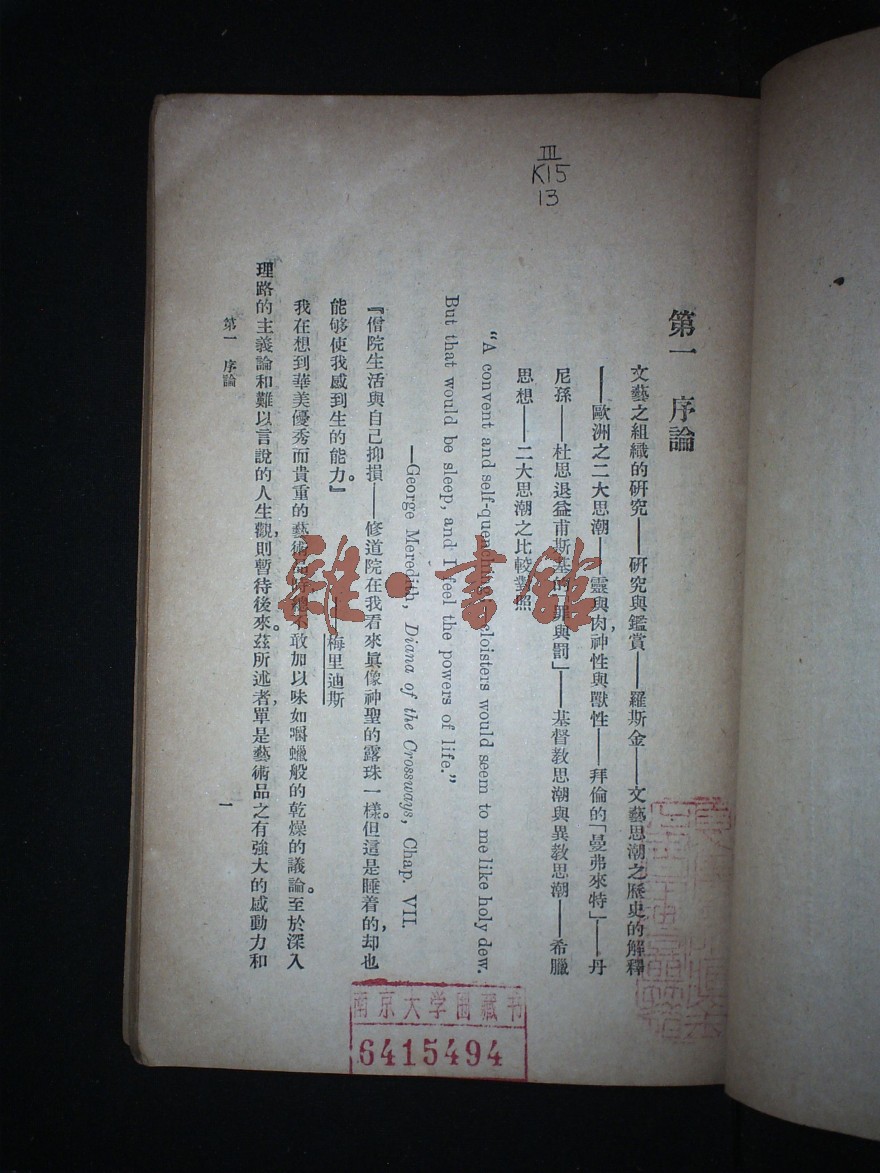 III
K15
13
第一 序論
文藝之組織的研究——研究與鑑賞——羅斯金——文藝思潮之歷史的解釋
——歐洲之二大思潮——靈與肉,神性與獸性——拜倫的「曼弗來特」——丹
尼孫——杜思退益甫斯基的「罪與罰」——基督教思潮與異教思潮——希臘
思想——二大思潮之比較對照
"A convent and self-quenching, cloisters would seem to me like holy dew.
But that would be sleep, and I feel the powers of life."
—George Meredith, Diana of the Crossways, Chap. VII.
『僧院生活與自己抑損——修道院在我看來眞像神聖的露珠一樣。但這是睡着的,却也
能够使我感到生的能力。』
——梅里迪斯
我在想到華美優秀而貴重的藝術品時,總不敢加以味如嚼蠟般的乾燥的議論。至於深入
理路的主義論和難以言說的人生觀,則暫待後來。茲所述者,單是藝術品之有強大的感動力和
第一 序論
一
雜·書館
南京大学图藏书
6415494